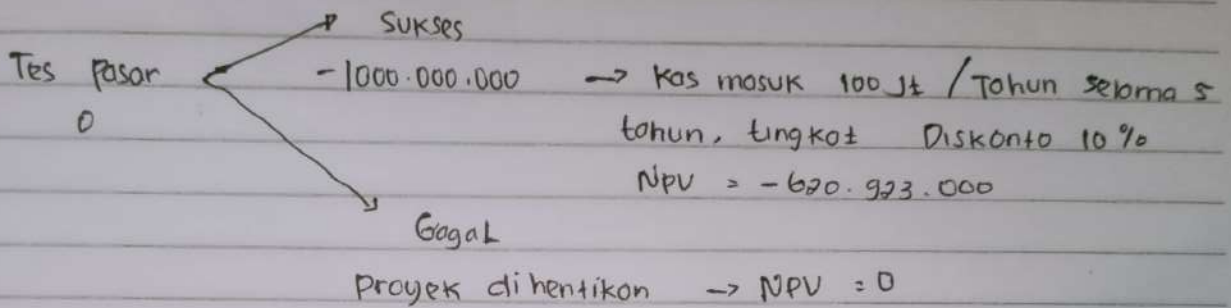 Sukses
Tes Pasar
-1000.000.000 → Kas masuk 100 Jt / Tahun selama 5
0
tahun, tingkat Diskonto 10 %
NPV = -620.923.000
Gagal
Proyek dihentikan → NPV = 0